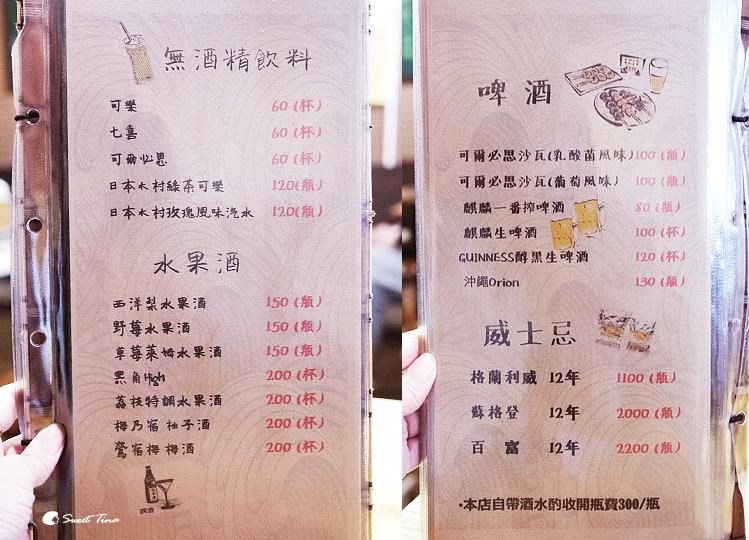 無酒精飲料
可樂 60 (杯)
七喜 60 (杯)
可爾必思 60 (杯)
日本木村綠茶可樂 120(瓶)
日本木村玫瑰風味汽水 120(瓶)
水果酒
西洋梨水果酒 150 (瓶)
野莓水果酒 150 (瓶)
草莓萊姆水果酒 150 (瓶)
黑角High 200 (杯)
荔枝特調水果酒 200 (杯)
梅乃宿 柚子酒 200 (杯)
鶯宿梅梅酒 200 (杯)
Sweet Tina
啤酒
可爾必思沙瓦(乳酸菌風味) 100 (瓶)
可爾必思沙瓦(葡萄風味) 100 (瓶)
麒麟一番搾啤酒 80 (瓶)
麒麟生啤酒 100 (杯)
GUINNESS醇黑生啤酒 120 (杯)
沖繩Orion 130 (瓶)
威士忌
格蘭利威 12年 1100 (瓶)
蘇格登 12年 2000 (瓶)
百富 12年 2200 (瓶)
•本店自帶酒水酌收開瓶費300/瓶